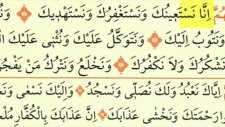 هُمَّ إِنَّا نَسْتَعِينُكَ وَنَسْتَغْفِرُكَ وَنَسْتَهْدِيكَ
وَنَتُوبُ إِلَيْكَ وَنَتَوَكَّلُ عَلَيْكَ وَنُثْنِى عَلَيْكَ
نَشْكُرُكَ وَلَا نَكْفُرُكَ وَنَخْلَعُ وَنَتْرُكُ مَنْ يَفْجُرُ
إِيَّاكَ نَعْبُدُ وَلَكَ نُصَلِّى وَنَسْجُدُ وَإِلَيْكَ نَسْعَى
رَحْمَتَكَ وَنَخْشَى عَذَابَكَ إِنَّ عَذَابَكَ بِالْكُفَّارِ